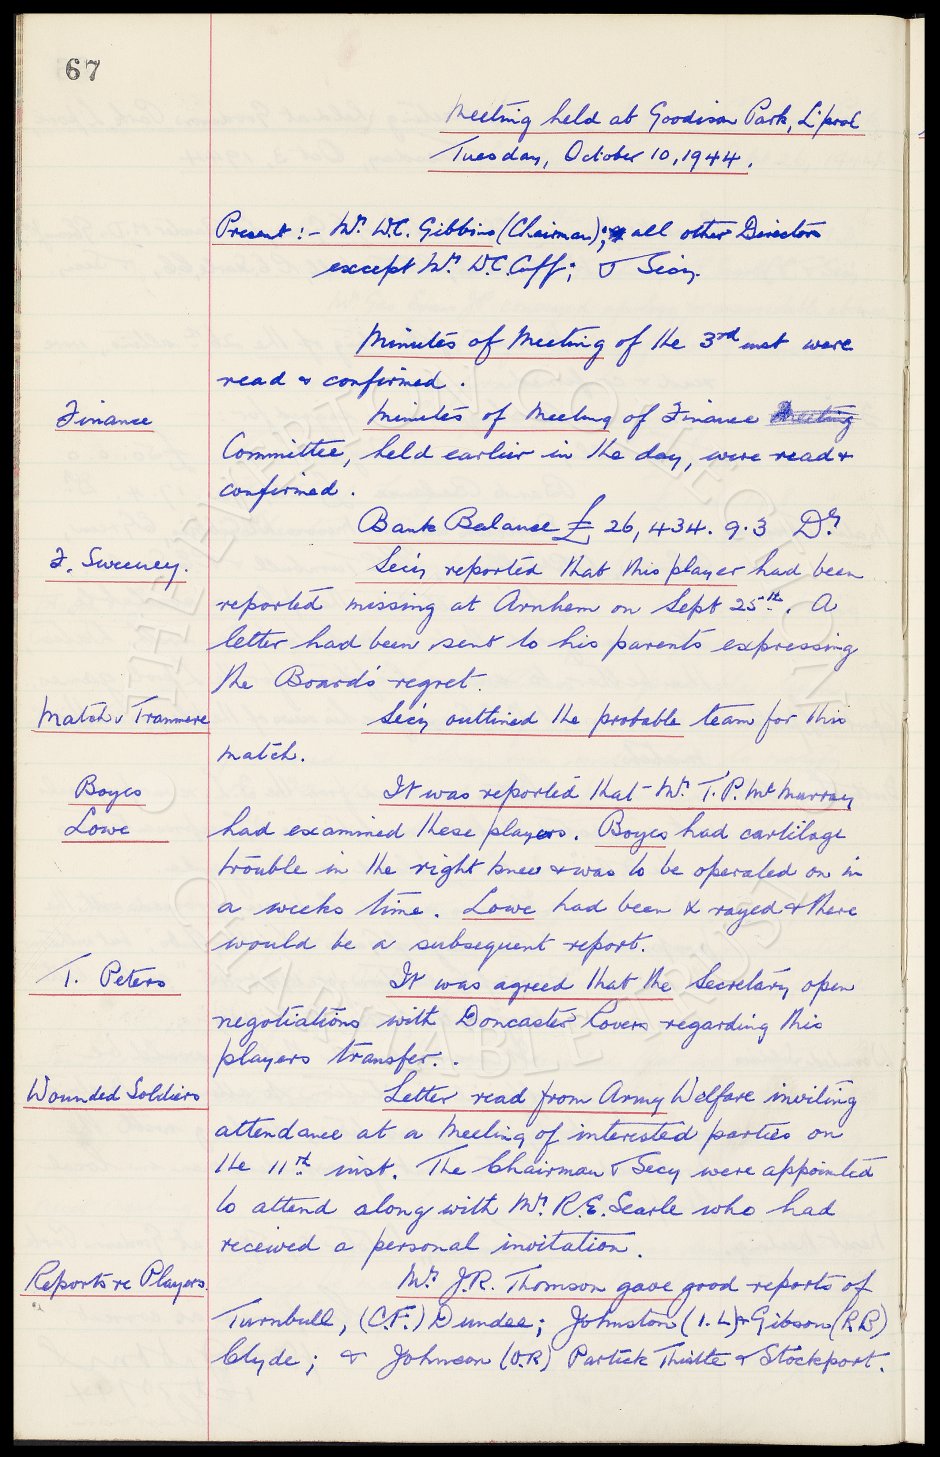 67
Meeting held at Goodison Park, L'pool
Tuesday, October 10, 1944.
Present:- Mr. W.C. Gibbins (Chairman); all other Directors
except Mr. W.C. Cuff; & Secy.
Minutes of Meeting of the 3rd inst were
read & confirmed.
Finance
Minutes of Meeting of Finance Meeting
Committee, held earlier in the day, were read &
confirmed.
Bank Balance £ 26,434. 9. 3 Dr.
F. Sweeney.
Secy reported that this player had been
reported missing at Arnhem on Sept 25th. A
letter had been sent to his parents expressing
the Board's regret.
Match v Tranmere
Secy outlined the probable team for this
match.
Boyes
Lowe
It was reported that Mr. T.P. McMurray
had examined these players. Boyes had cartilage
trouble in the right knee & was to be operated on in
a weeks time. Lowe had been X rayed & there
would be a subsequent report.
T. Peters
It was agreed that the Secretary open
negotiations with Doncaster Rovers regarding this
players transfer.
Wounded Soldiers
Letter read from Army Welfare inviting
attendance at a Meeting of interested parties on
the 11th inst. The Chairman & Secy were appointed
to attend along with Mr. R.E. Searle who had
received a personal invitation.
Reports re Players.
Mr. J.R. Thomson gave good reports of
Turnbull, (C.F.) Dundee; Johnston (I.L) & Gibson (R.B)
Clyde; & Johnson (O.R) Partick Thistle & Stockport.
THE EVERTON COLLECTION
CHARITABLE TRUST